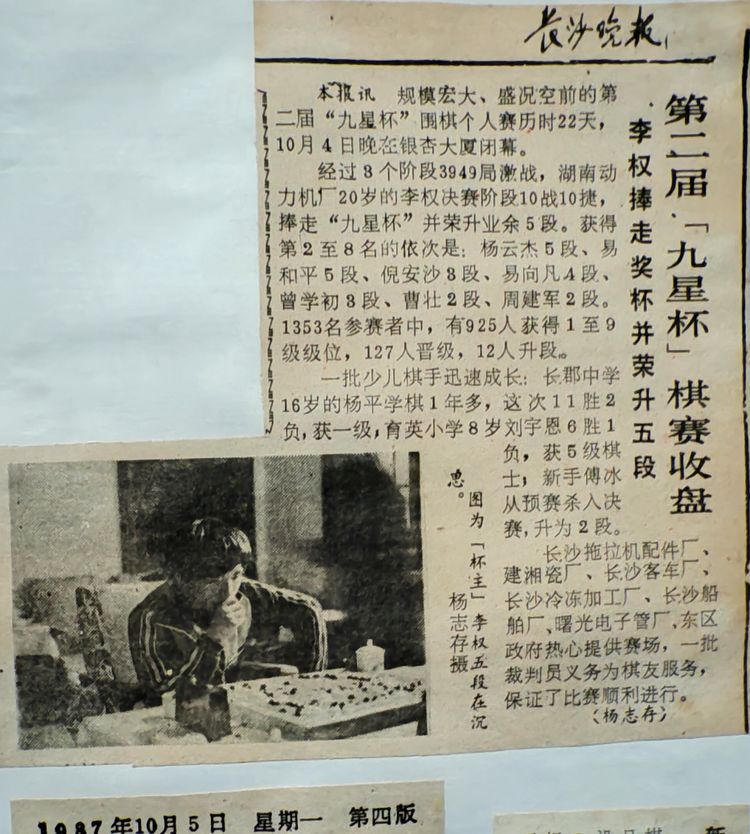 长沙晚报
第二届「九星杯」棋赛收盘
李权捧走奖杯并荣升五段
本报讯 规模宏大、盛况空前的第
二届“九星杯”围棋个人赛历时22天，
10月4日晚在银杏大厦闭幕。
经过3个阶段3949局激战，湖南动
力机厂20岁的李权决赛阶段10战10捷，
捧走“九星杯”并荣升业余5段。获得
第2至8名的依次是：杨云杰5段、易
和平5段、倪安沙3段、易向凡4段、
曾学初3段、曹壮2段、周建军2段。
1353名参赛者中，有925人获得1至9
级级位，127人晋级，12人升段。
一批少儿棋手迅速成长：长郡中学
16岁的杨平学棋1年多，这次11胜2
负，获一级，育英小学8岁刘宇恩6胜1
负，获5级棋
士；新手傅冰
从预赛杀入决
赛，升为2段。
长沙拖拉机配件厂、
建湘瓷厂、长沙客车厂、
长沙冷冻加工厂、长沙船
舶厂、曙光电子管厂、东区
政府热心提供赛场，一批
裁判员义务为棋友服务，
保证了比赛顺利进行。
（杨志存）
图为「杯主」李权五段在沉
思。
杨志存摄
1987年10月5日 星期一 第四版